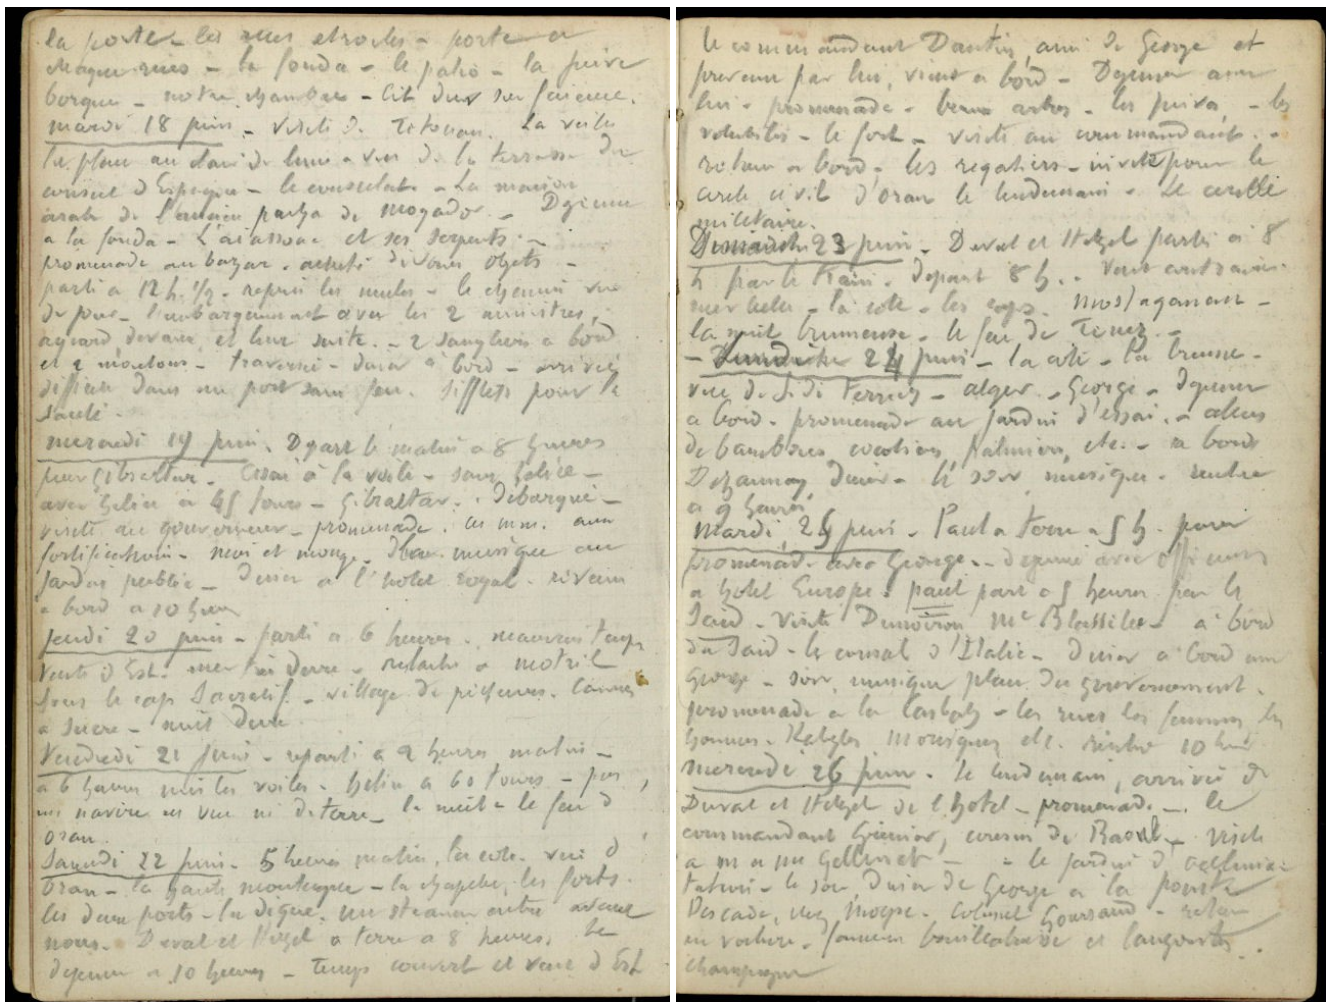 la porte - les rues etroites - porte a
chaque rues - la fonda - le patio - la juive
borgne - notre chambre - lit dur sur faience.
mardi 18 juin - visite de Tetouan. La veille
la place au clair de lune - vue de la terrasse du
consul d'Espagne - le consulat - La maison
arabe de l'ancien pacha de Mogador - Dejeuner
a la fonda - L'aissaoua et ses serpents -
promenade au bazar - acheté divers objets -
parti a 12 h. 1/2 - repris les mules - le chemin vue
de jour - l'embarquement avec les 2 ministres,
et leur suite - 2 sangliers a bord
et 2 moutons - traversée - diner a bord - arrivée
difficile dans un port sans feu. Sifflets pour la
santé.
mercredi 19 juin. Depart le matin a 8 heures
pour Gibraltar. Essai à la voile - sans helice -
avec helice a 45 tours - Gibraltar - débarqué -
visite au gouverneur - promenade. aux
fortifications - musique au
jardin public - diner a l'hotel royal - revenu
a bord a 10 heures
Jeudi 20 juin - parti a 6 heures. mauvais temps
vents d'Est. mer tres dure - relache a Motril
sous le cap Sacratif - village de pecheurs. Cannes
a sucre - nuit dure
Vendredi 21 juin - reparti a 2 heures matin -
a 6 heures mis les voiles. helice a 60 tours - pas
un navire en vue ni de terre - la nuit - le feu d'
Oran.
Samedi 22 juin - 5 heures matin, la cote - vue d'
Oran - la haute montagne - la chapelle, les forts.
les deux ports - la digue. un steamer entre avant
nous. Duval et Hetzel a terre a 8 heures.
dejeuner a 10 heures - Temps couvert et vent d'Est
le commandant Dantin, ami de George et
prevenu par lui, vient a bord - Dejeuner avec
lui - promenade - beaux arbres - les juives - les
volubilis - le fort - visite au commandant -
retour a bord - les regatiers - invité pour le
cercle civil d'Oran le lendemain - Le cercle
militaire.
Dimanche 23 juin - Duval et Hetzel partis a 8
h par le train. Depart 8 h. - Vent contraire -
mer belle - la cote - les caps. Mostaganem -
la nuit brumeuse - le feu de Tenez -
- Lundi 24 juin - la cote - la brume -
vue de Sidi Ferruch - alger - George - dejeuner
a bord - promenade au jardin d'essai - allées
de bambous, palmiers, etc. - a bord
Dehannoy diner - le soir musique. rentré
a 9 heures
Mardi 25 juin - Paul a terre a 5 h. pour
promenade avec George - dejeuné avec officiers
a hotel Europe. paul part a 5 heures par le
Said - visite Dumoiron, a bord
du Said - le consul d'Italie - diner a bord avec
George - soir, musique place du gouvernement.
promenade a la Casbah - les rues les femmes les
hommes - Kabyles, Mauresques etc. rentré 10 h
mercredi 26 juin - le lendemain, arrivée de
Duval et Hetzel de l'hotel - promenade - le
commandant Grenier, cousin de Raoul - visite
a m a me - le jardin d'acclima-
tation - le soir, diner de George a la pointe
Pescade, chez Moyse - Colonel Goursaud - retour
en voiture - fameuse bouillabaisse et langoustes
champagne